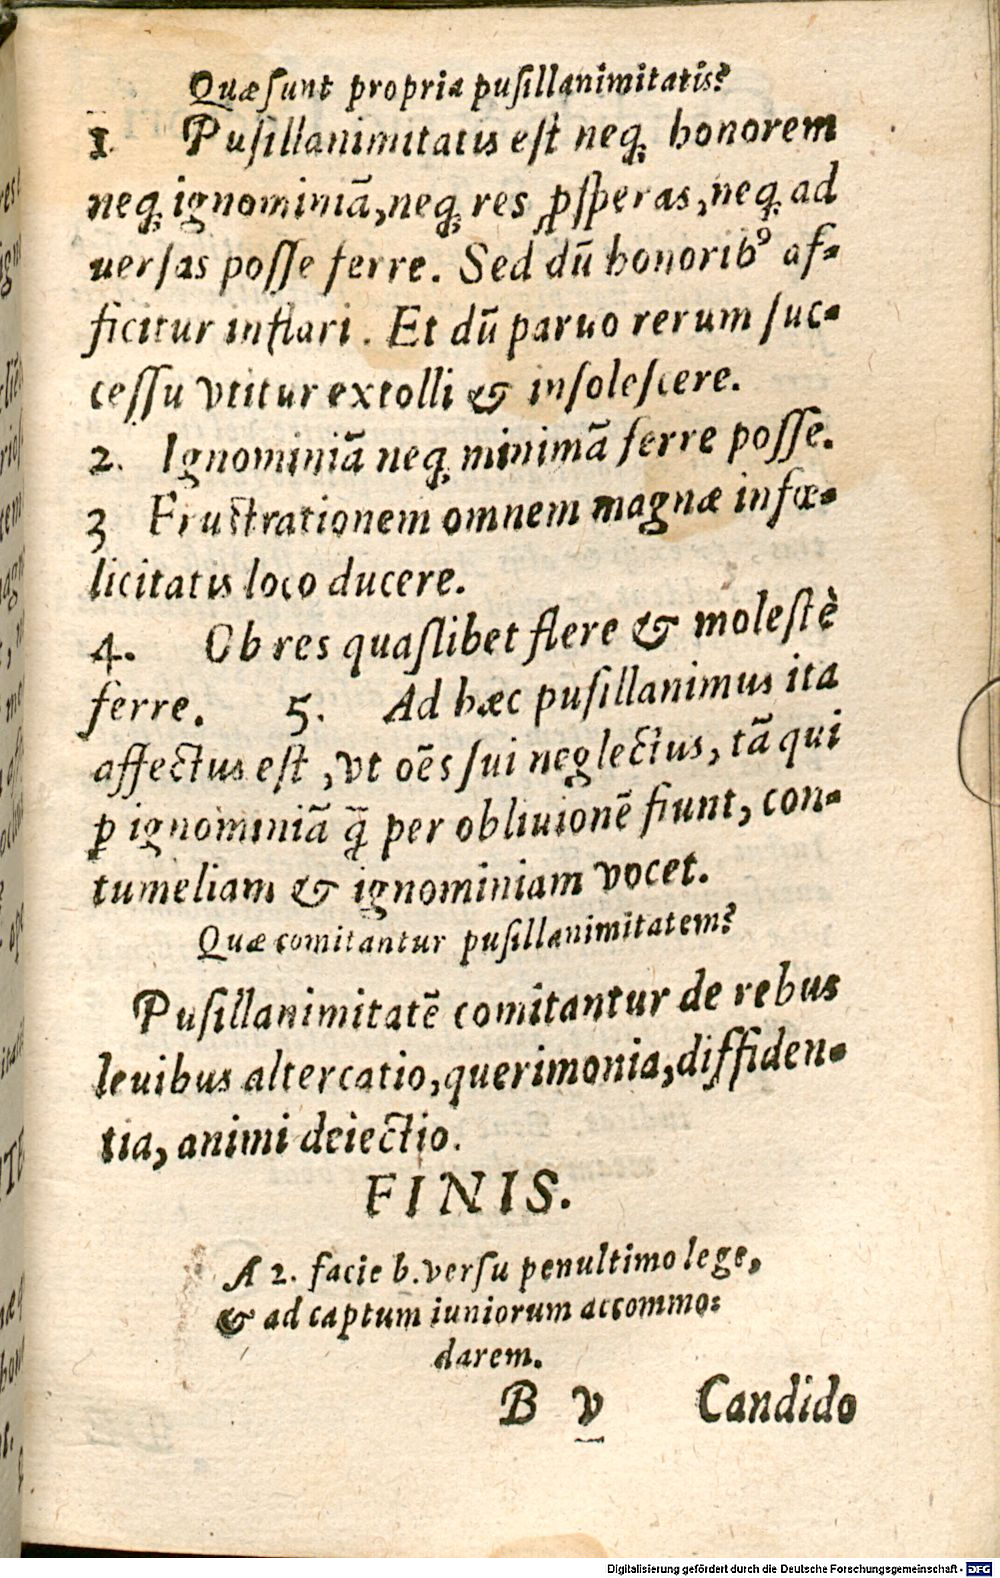 Quæ sunt propria pusillanimitatis?
1. Pusillanimitatis est neq; honorem
neq; ignominiā, neq; res ꝓsperas, neq; ad
uersas posse ferre. Sed dū honoribꝰ af-
ficitur inflari. Et dū paruo rerum suc-
cessu vtitur extolli & insolescere.
2. Ignominiā neq; minimā ferre posse.
3 Frustrationem omnem magnæ infœ-
licitatis loco ducere.
4. Ob res quaslibet flere & molestè
ferre. 5. Ad hæc pusillanimus ita
affectus est, vt oēs sui neglectus, tā qui
ꝑ ignominiā q̄ per obliuionē fiunt, con-
tumeliam & ignominiam vocet.
Quæ comitantur pusillanimitatem?
Pusillanimitatē comitantur de rebus
leuibus altercatio, querimonia, diffiden-
tia, animi deiectio.
FINIS.
A 2. facie b. versu penultimo lege,
& ad captum iuniorum accommo-
darem.
B v Candido
Digitalisierung gefördert durch die Deutsche Forschungsgemeinschaft - DFG